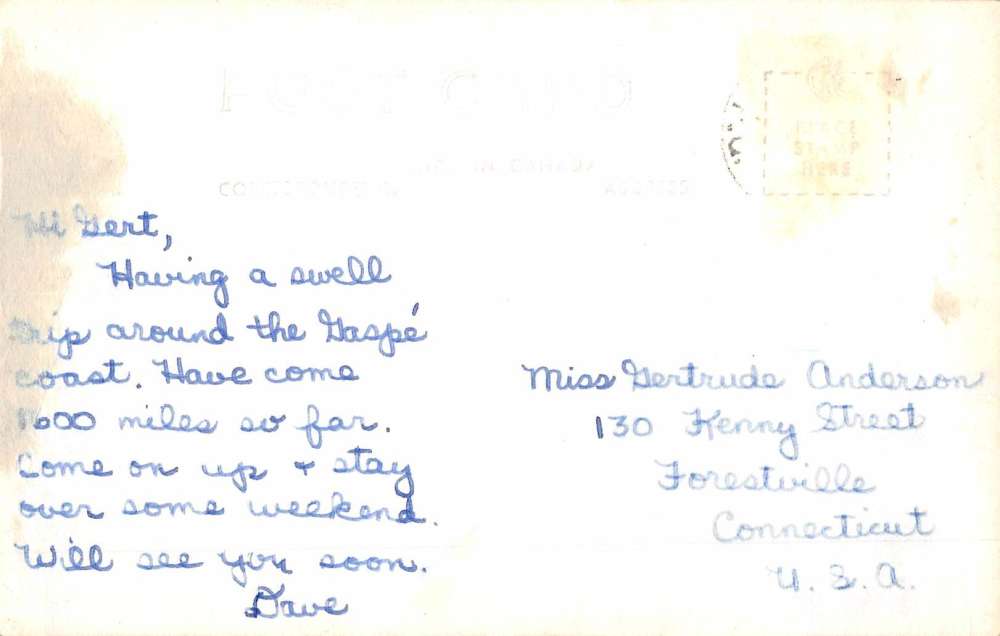 POST CARD
CANADA
CORRESPONDENCE ADDRESS
PLACE
STAMP
HERE
Hi Gert,
Having a swell
trip around the Gaspé
coast. Have come
1600 miles so far.
Come on up + stay
over some weekend.
Will see you soon.
Dave
Miss Gertrude Anderson
130 Kenny Street
Forestville
Connecticut
U. S. A.